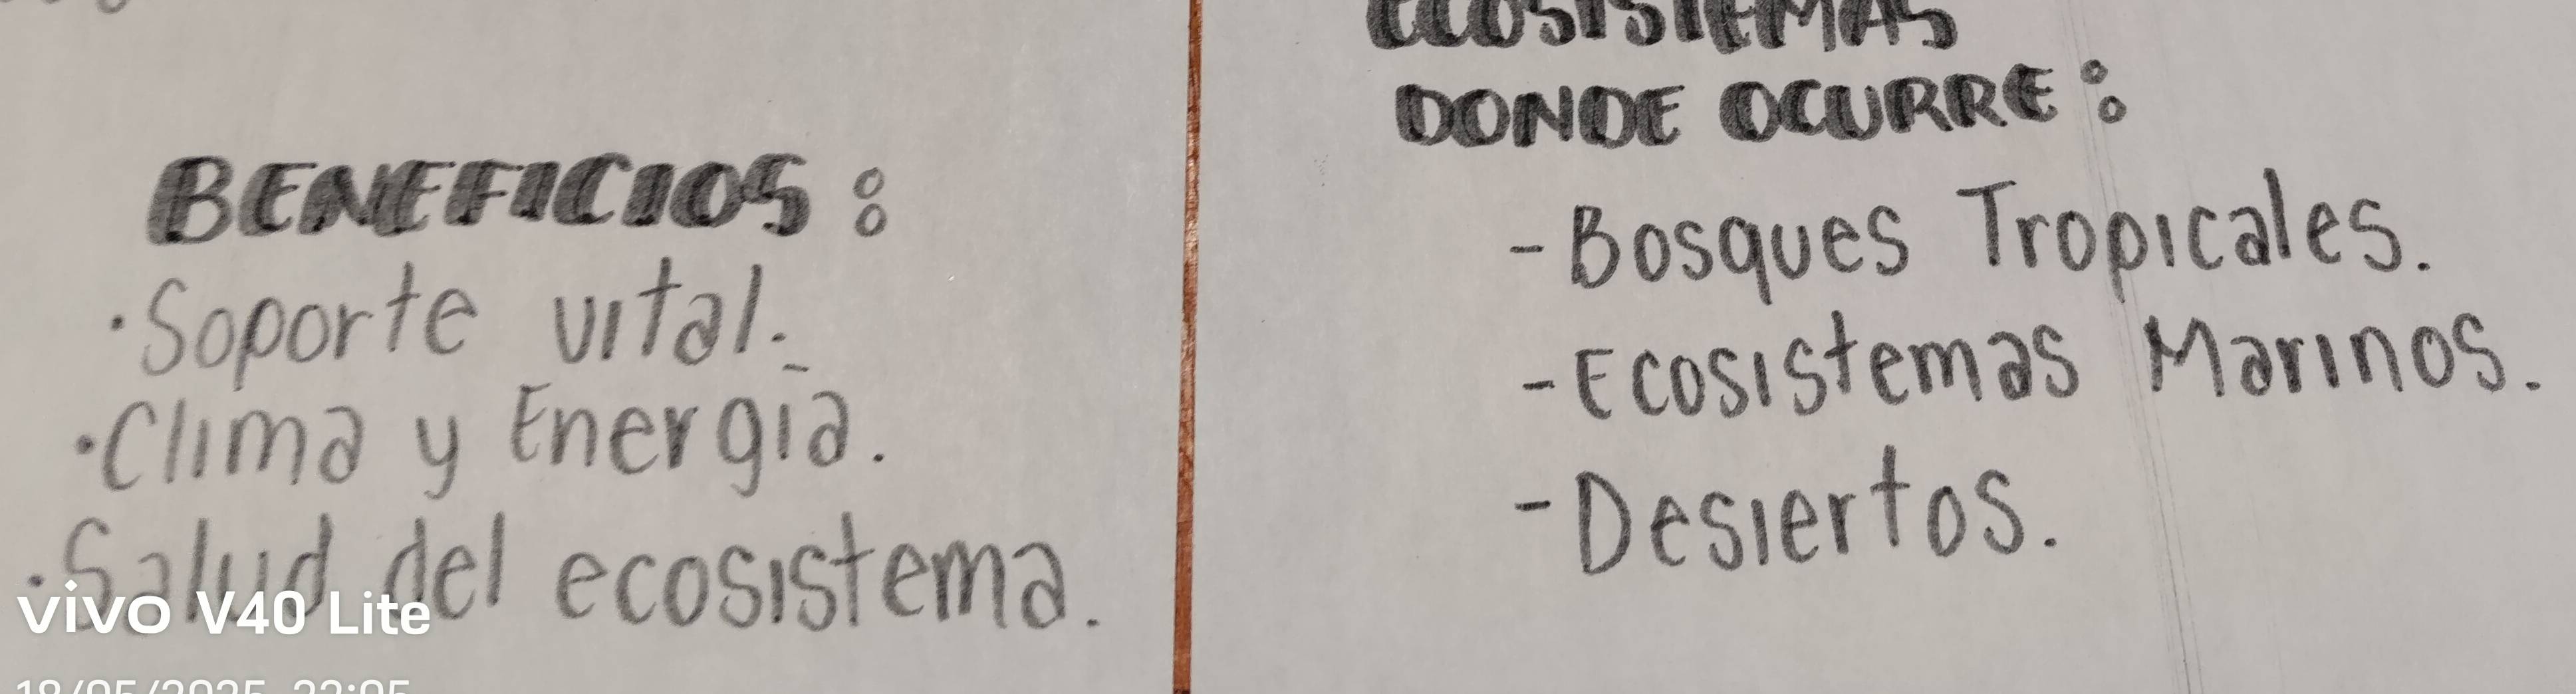 BENEFICIOS:
·Soporte vital.
·Clima y Energía.
·Salud del ecosistema.
ECOSISTEMAS
DONDE OCURRE:
-Bosques Tropicales.
-Ecosistemas Marinos.
-Desiertos.
vivo V40 Lite
18/05/2025 22:05